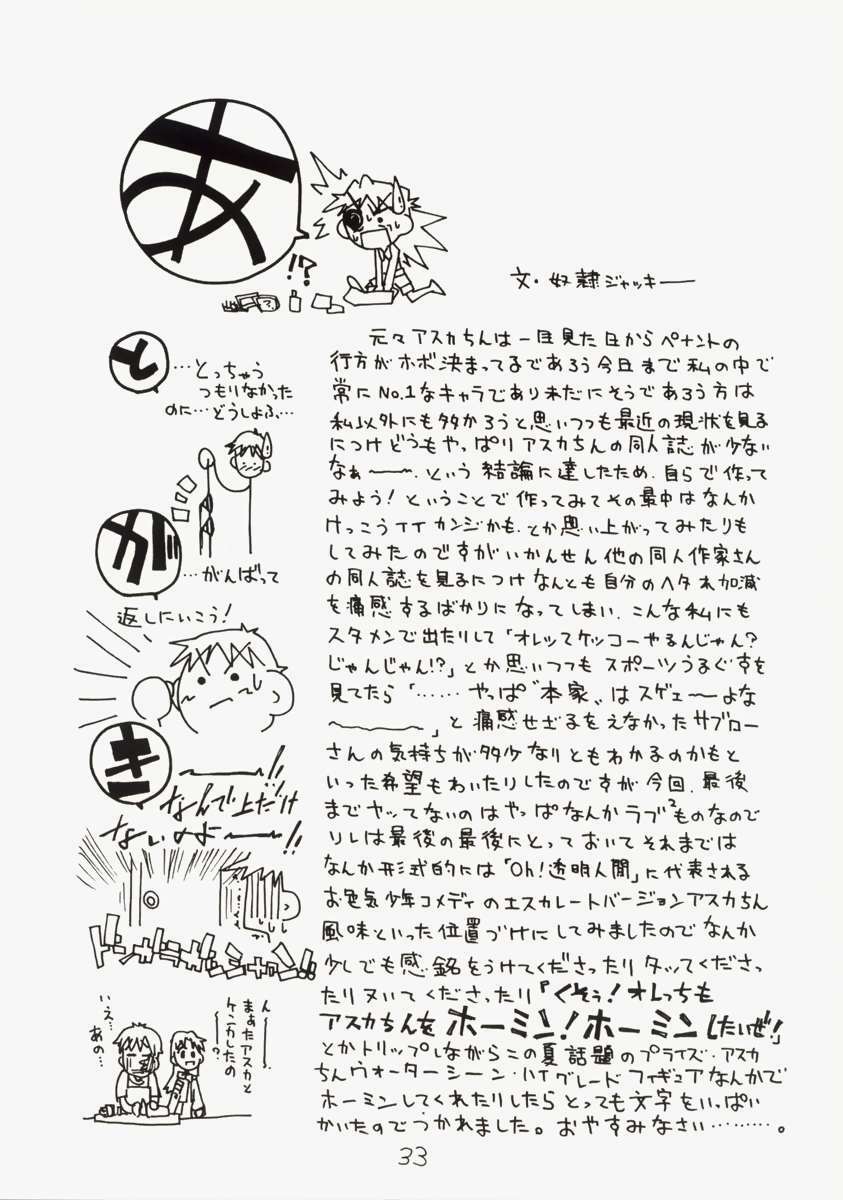 あ
!?
文・奴隷ジャッキー
と
…とっちゃう
つもりなかった
のに…どうしよふ…
が
…がんばって
返しにいこう!
き
〜〜!!
なんで上だけ
ないのよ〜〜!!
ん〜〜
まぁたアスカと
ケンカしたの
〜?
いえ…
あの…
元々アスカちんは一目見た日からペナントの
行方がホボ決まってるであろう今日まで私の中で
常にNo.1なキャラであり未だにそうであろう方は
私以外にも多かろうと思いつつも最近の現状を見る
につけどうもやっぱりアスカちんの同人誌が少ない
なぁ〜〜.という結論に達したため.自らで作って
みよう!ということで作ってみてその最中はなんか
けっこうイイカンジかも.とか思い上がってみたりも
してみたのですがいかんせん他の同人作家さん
の同人誌を見るにつけなんとも自分のヘタれ加減
を痛感するばかりになってしまい.こんな私にも
スタメンで出たりして「オレッてケッコーやるんじゃん?
じゃんじゃん!?」とか思いつつもスポーツうるぐすを
見てたら「……やっぱ〝本家〟はスゲェ〜よな
〜〜〜」と痛感せざるをえなかったサブロー
さんの気持ちが多少なりともわかるのかもと
いった希望もわいたりしたのですが今回.最後
までヤッてないのはやっぱなんかラブ²ものなので
ソレは最後の最後にとっておいてそれまでは
なんか形式的には「Oh!透明人間」に代表される
お色気少年コメディのエスカレートバージョンアスカちん
風味といった位置づけにしてみましたのでなんか
少しでも感銘をうけてくださったりタッてくださっ
たりヌいてくださったり『くそぅ!オレっちも
アスカちんをホーミン!ホーミンしたいぜ!』
とかトリップしながらこの夏話題のプライズ・アスカ
ちんウォーターシーン・ハイグレードフィギュアなんかで
ホーミンしてくれたりしたらとっても文字をいっぱい
かいたのでつかれました。おやすみなさい………。
33